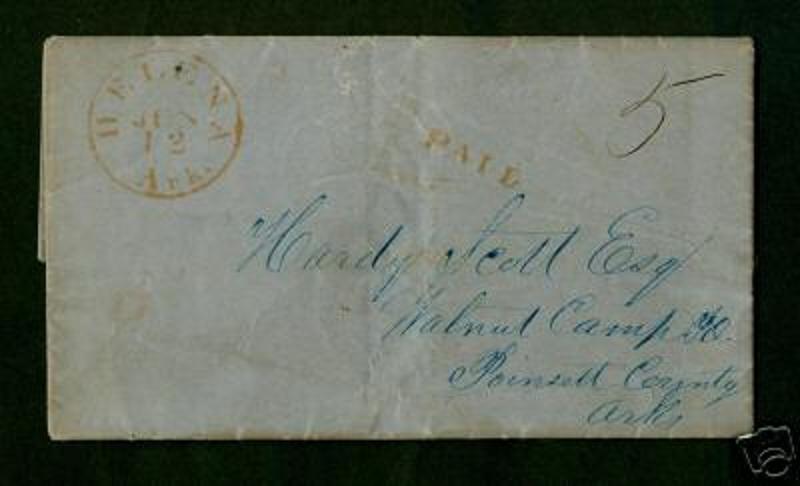 HELENA
12
Ark.
PAID
5
Hardy Scott Esq
Walnut Camp PO.
Poinsett County
Arks